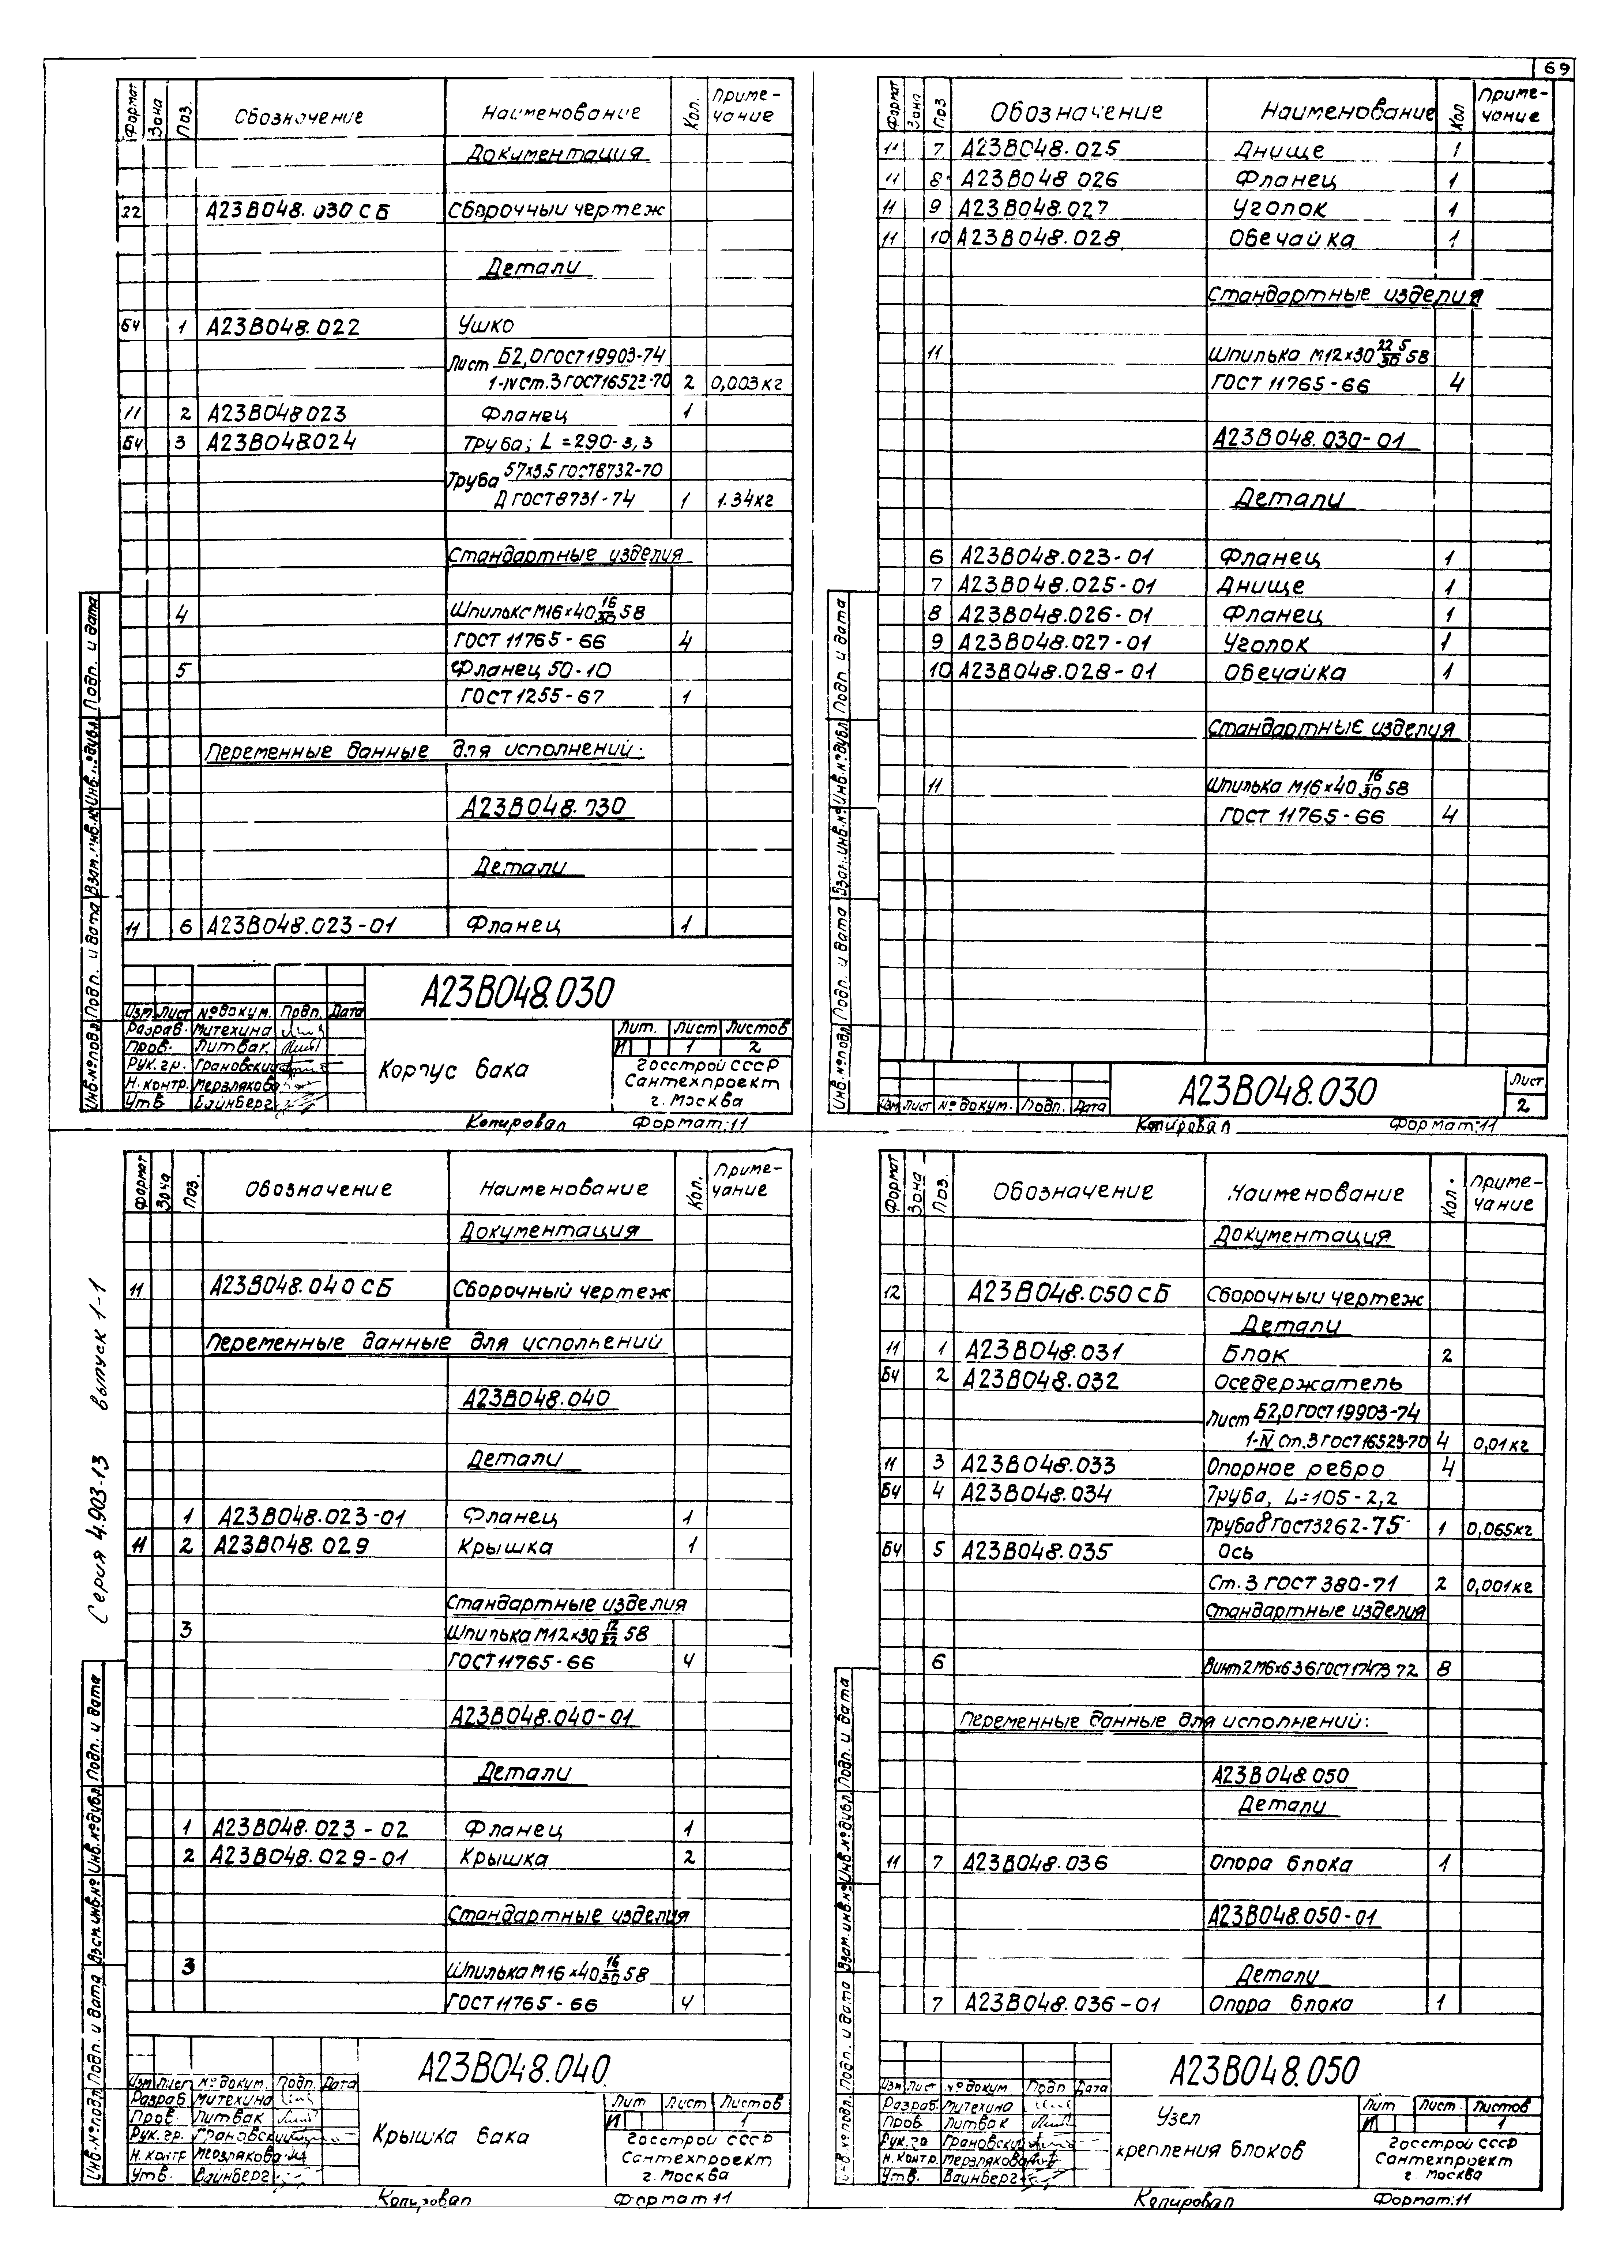 69
Формат Зона Поз. Обозначение Наименование Кол. Приме-
чание
Документация
22 А23В048.030 СБ Сборочный чертеж
Детали
БЧ 1 А23В048.022 Ушко
Лист Б2,0 ГОСТ 19903-74
1-IV Ст.3 ГОСТ 16523-70 2 0,003 кг
11 2 А23В048023 Фланец 1
БЧ 3 А23В048024 Труба; L=290-3,3
Труба 57х3.5 ГОСТ 8732-70
Д ГОСТ 8731-74 1 1.34кг
Стандартные изделия
4 Шпилька М16×40 16/30 58
ГОСТ 11765-66 4
5 Фланец 50-10
ГОСТ 1255-67 1
Переменные данные для исполнений:
А23В048.030
Детали
11 6 А23В048.023-01 Фланец 1
А23В048.030
Изм Лист № докум. Подп. Дата
Разраб. Митехина
Пров. Литвак
Рук. гр. Грановский
Н. контр. Мерзлякова
Утв. Вайнберг
Корпус бака
Лит. Лист Листов
И 1 2
Госстрой СССР
Сантехпроект
г. Москва
Копировал Формат: 11
Инв. № подл. Подп. и дата Взам. инв. № Инв. № дубл. Подп. и дата
Формат Зона Поз Обозначение Наименование Кол Приме-
чание
11 7 А23В048.025 Днище 1
11 8 А23В048 026 Фланец 1
11 9 А23В048.027 Уголок 1
11 10 А23В048.028 Обечайка 1
Стандартные изделия
11 Шпилька М12×30 22 5/30 58
ГОСТ 11765-66 4
А23В048.030-01
Детали
6 А23В048.023-01 Фланец 1
7 А23В048.025-01 Днище 1
8 А23В048.026-01 Фланец 1
9 А23В048.027-01 Уголок 1
10 А23В048.028-01 Обечайка 1
Стандартные изделия
11 Шпилька М16×40 16/30 58
ГОСТ 11765-66 4
Изм Лист № докум. Подп. Дата
А23В048.030
Лист
2
Копировал Формат: 11
Инв. № подл Подп. и дата Взам. инв. № Инв. № дубл Подп и дата
Серия 4.903-13 выпуск 1-1
Формат Зона Поз. Обозначение Наименование Кол. Приме-
чание
Документация
11 А23В048.040 СБ Сборочный чертеж
Переменные данные для исполнений
А23В048.040
Детали
1 А23В048.023-01 Фланец 1
11 2 А23В048.029 Крышка 1
Стандартные изделия
3 Шпилька М12×30 12/22 58
ГОСТ 11765-66 4
А23В048.040-01
Детали
1 А23В048.023-02 Фланец 1
2 А23В048.029-01 Крышка 2
Стандартные изделия
3 Шпилька М16×40 16/30 58
ГОСТ 11765-66 4
А23В048.040
Изм Лист № докум. Подп. Дата
Разраб Митехина
Пров. Литвак
Рук. гр. Грановский
Н. контр Мерзлякова
Утв. Вайнберг
Крышка бака
Лит Лист Листов
И 1
Госстрой СССР
Сантехпроект
г. Москва
Копировал Формат 11
Инв. № подл Подп. и дата Взам. инв. № Инв. № дубл Подп. и дата
Формат Зона Поз. Обозначение Наименование Кол. Приме-
чание
Документация
12 А23В048.050 СБ Сборочный чертеж
Детали
11 1 А23В048.031 Блок 2
БЧ 2 А23В048.032 Оседержатель
Лист Б2,0 ГОСТ 19903-74
1-IV Ст.3 ГОСТ 16523-70 4 0,01 кг
11 3 А23В048.033 Опорное ребро 4
БЧ 4 А23В048.034 Труба, L=105-2,2
Труба 8 ГОСТ 3262-75 1 0,065кг
БЧ 5 А23В048.035 Ось
Ст. 3 ГОСТ 380-71 2 0,001кг
Стандартные изделия
6 Винт 2М6×6 36 ГОСТ 17473 72 8
Переменные данные для исполнений:
А23В048.050
Детали
11 7 А23В048.036 Опора блока 1
А23В048.050-01
Детали
7 А23В048.036-01 Опора блока 1
А23В048.050
Изм Лист № докум. Подп Дата
Разраб. Митехина
Пров Литвак
Рук. гр Грановский
Н. контр. Мерзлякова
Утв. Вайнберг
Узел
крепления блоков
Лит Лист. Листов
И 1
Госстрой СССР
Сантехпроект
г. Москва
Копировал Формат: 11
Инв. № подл. Подп. и дата Взам. инв. № Инв. № дубл. Подп. и дата